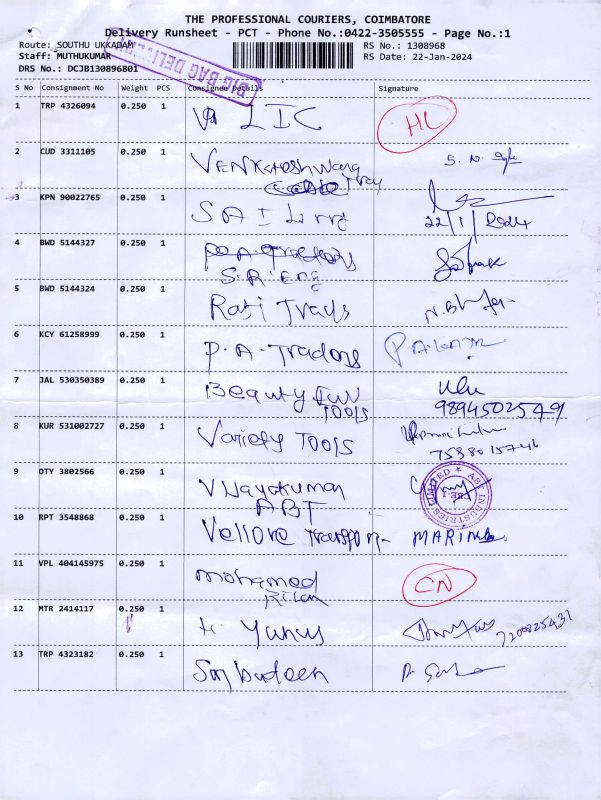 THE PROFESSIONAL COURIERS, COIMBATORE
Delivery Runsheet - PCT - Phone No.:0422-3505555 - Page No.:1
Route: SOUTHU UKKADAM RS No.: 1308968
Staff: MUTHUKUMAR RS Date: 22-Jan-2024
DRS No.: DCJB130896801
BIG BAG DELIVERY
S No Consignment No Weight PCS Consignee Details Signature
1 TRP 4326094 0.250 1 LIC HL
2 CUD 3311105 0.250 1 Venkateshwara
Tray
3 KPN 90022765 0.250 1 SAI
22/1/2024
4 BWD 5144327 0.250 1 P.A. Traders
S.R. Eng
5 BWD 5144324 0.250 1 Rafi Trays
6 KCY 61258999 0.250 1 P.A. Tradors P.A.
7 JAL 530350389 0.250 1 Beauty Full
Tools 9894502549
8 KUR 531002727 0.250 1 Variety Tools
7538015746
9 OTY 3802566 0.250 1 Vijayakumar
ABT
10 RPT 3548868 0.250 1 Vellore Transport
11 VPL 404145975 0.250 1 Mohamed CN
12 MTR 2414117 0.250 1 Yunus 7200825431
13 TRP 4323182 0.250 1